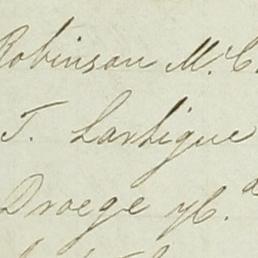 Robinson Mc C
T. Lartigue
Droege